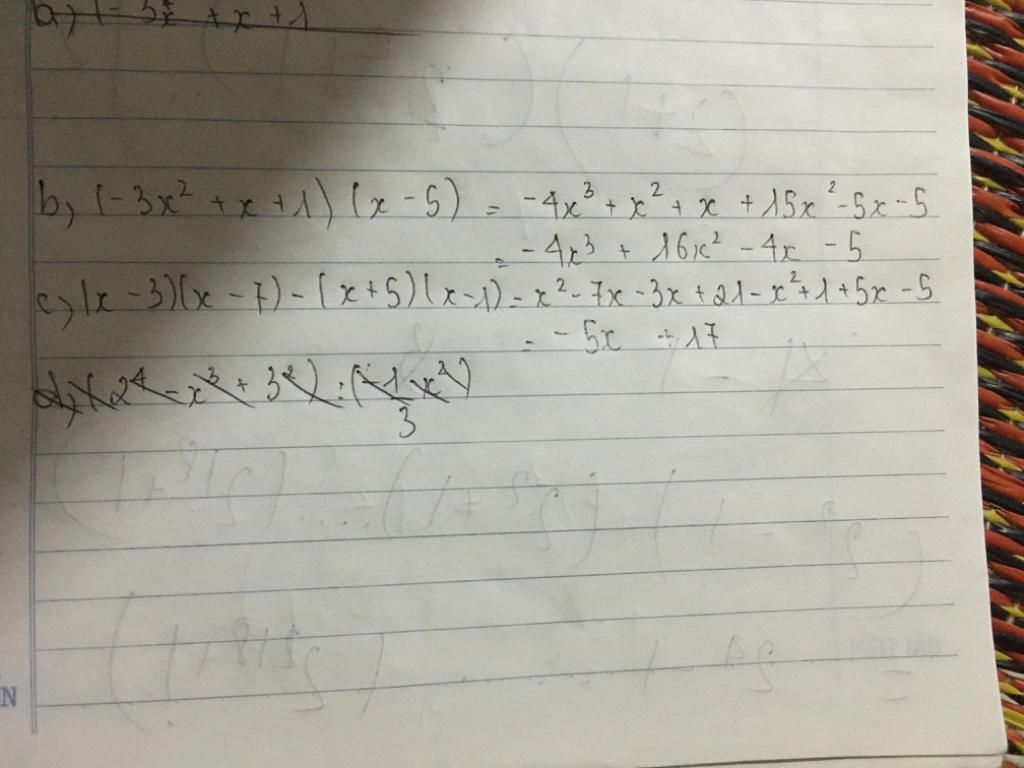 a) (-3x² + x + 1
b) (-3x² + x + 1) (x - 5) = -4x³ + x² + x + 15x² - 5x - 5
= -4x³ + 16x² - 4x - 5
c) (x - 3)(x - 7) - (x + 5)(x - 1) = x² - 7x - 3x + 21 - x² + 1 + 5x - 5
= - 5x + 17
d) (2⁴ - x³ + 3²) : (-1/3 x²)